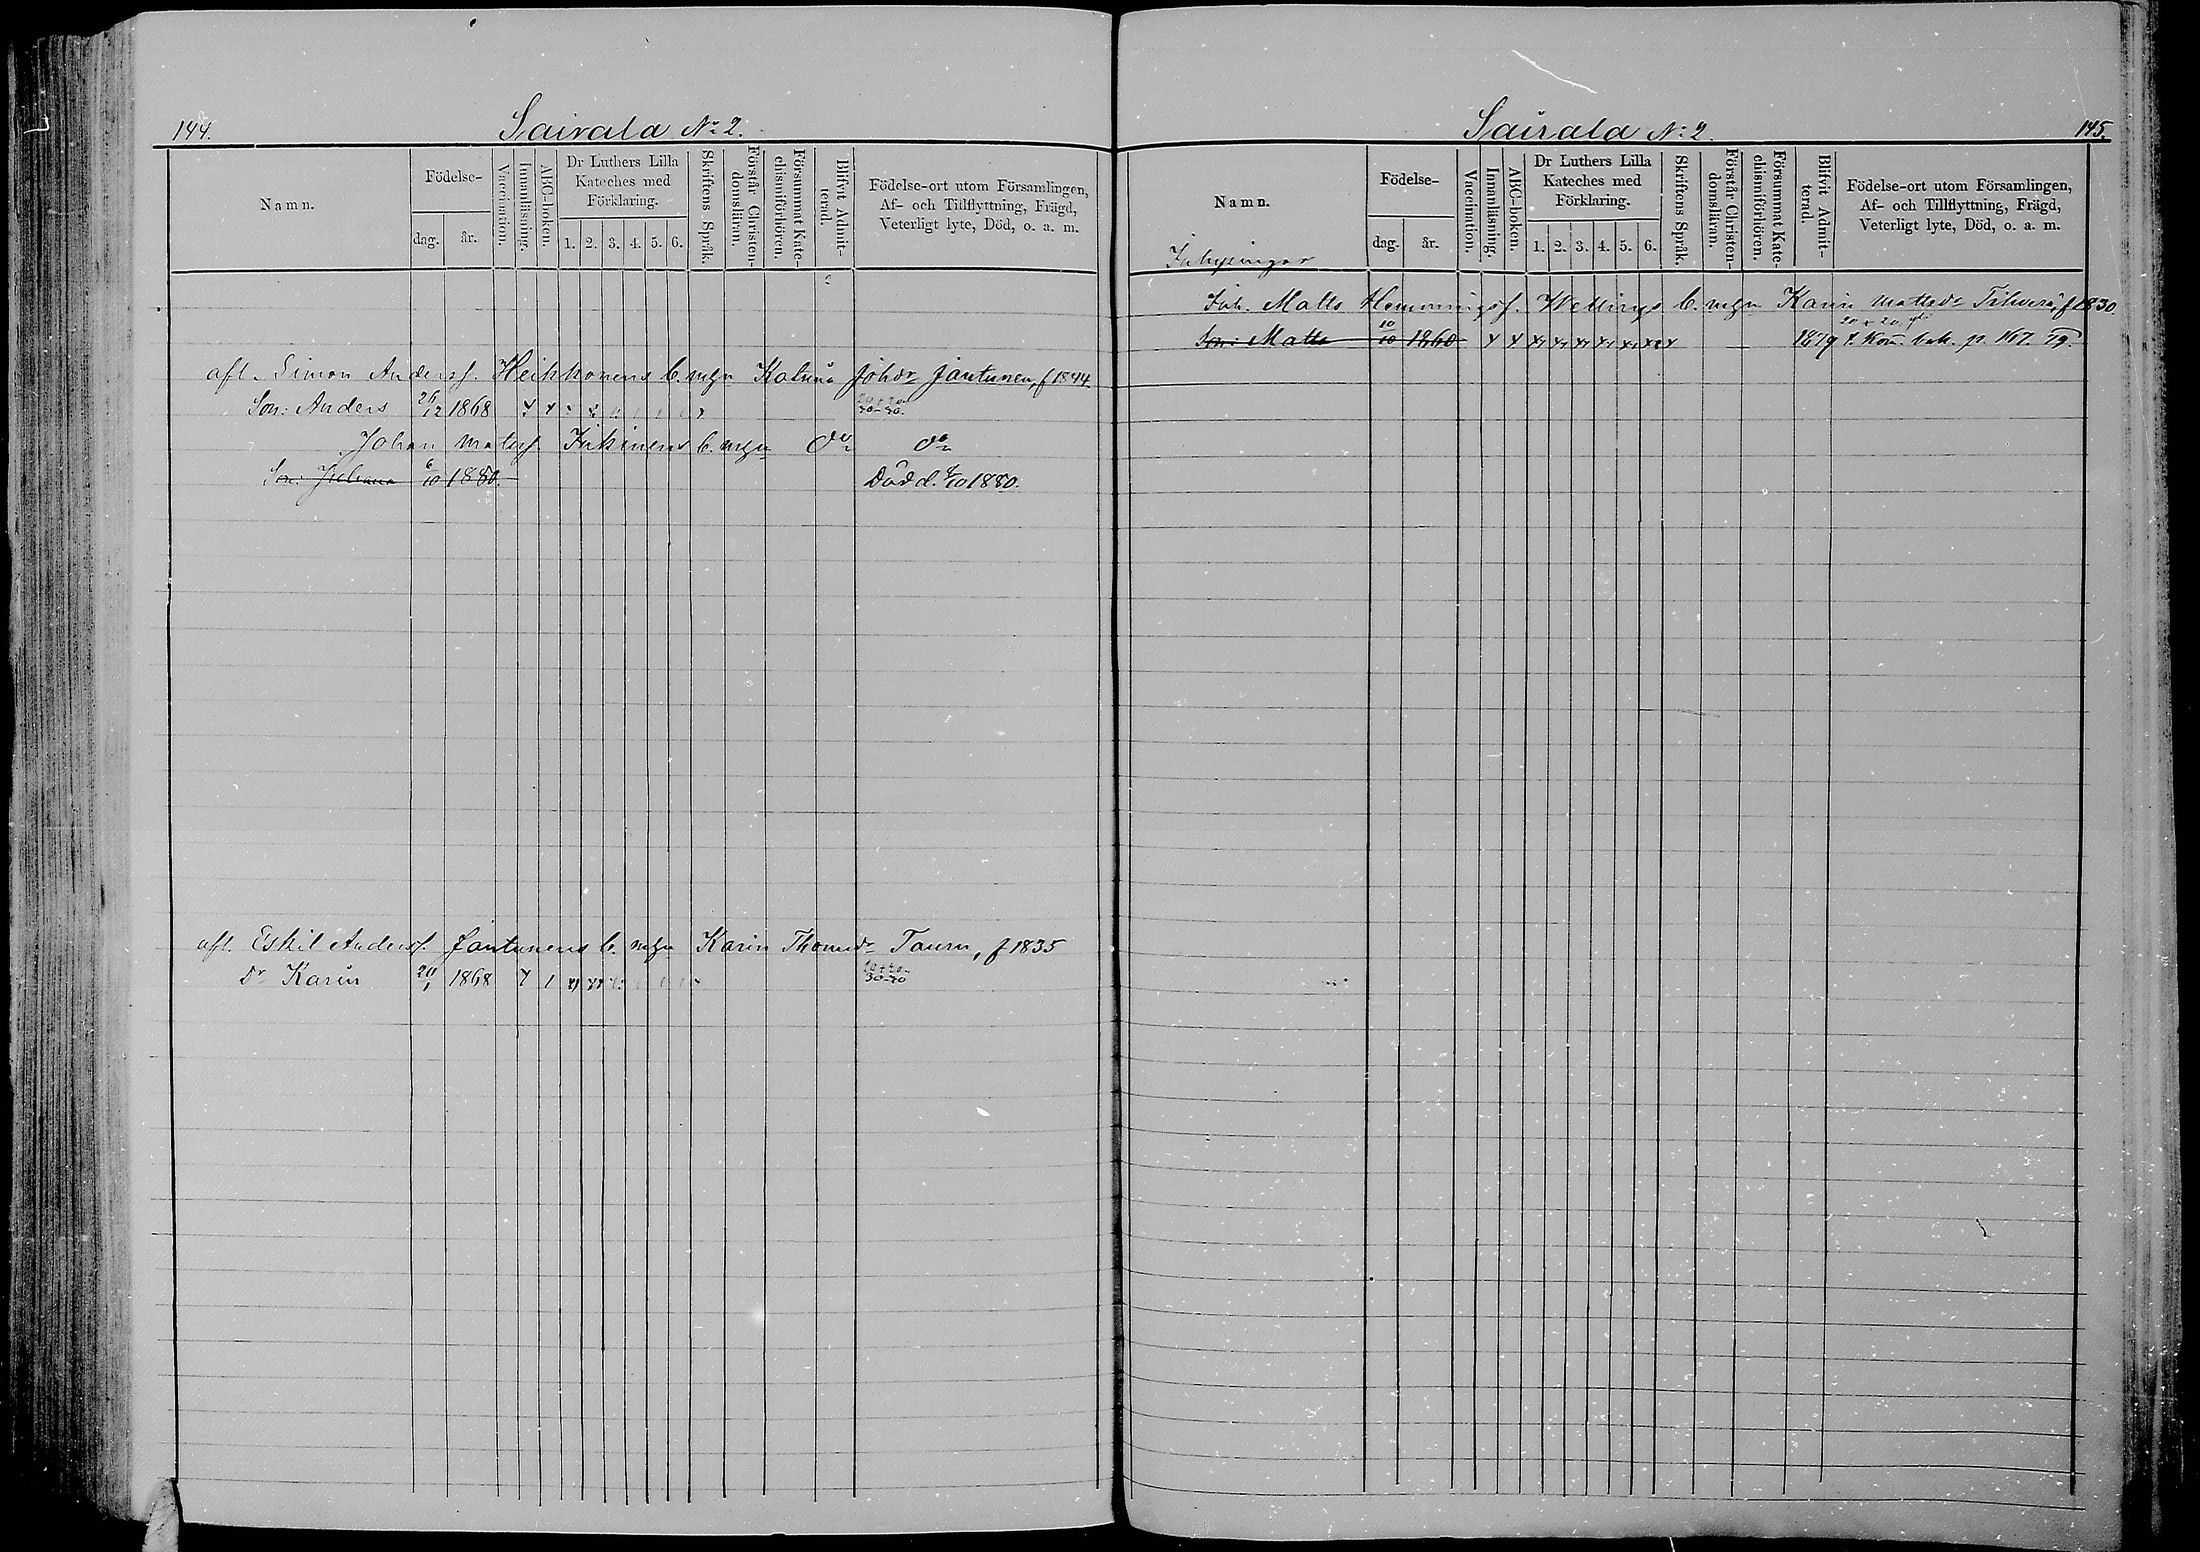 144.
Sairala No 2.
Namn.
Födelse-
dag.
år.
Vaccination.
Innanläsning.
ABC-boken.
Dr Luthers Lilla
Kateches med
Förklaring.
1. 2. 3. 4. 5. 6.
Skriftens Språk.
Förstår Christen-
domsläran.
Försummat Kate-
chismiförhören.
Blifvit Admit-
terad.
Födelse-ort utom Församlingen,
Af- och Tillflyttning, Frägd,
Veterligt lyte, Död, o. a. m.
afl. Simon Andersf. Heikkonens b. mgn Katrina Johdr Jantunen, f 1844.
Son: Anders 26/12 1868
Johan Matsf. Inkinens b. mgn Do Do
Son: Johan 6/10 1880. Död d. 8/10 1880.
afl. Eskil Andersf. Jantunens b. mgn Karin Thomdr Tauru, f 1835
Dr Karin 20/1 1868
Sairala No 2.
145.
Namn.
Inhysingar
Födelse-
dag.
år.
Vaccination.
Innanläsning.
ABC-boken.
Dr Luthers Lilla
Kateches med
Förklaring.
1. 2. 3. 4. 5. 6.
Skriftens Språk.
Förstår Christen-
domsläran.
Försummat Kate-
chismiförhören.
Blifvit Admit-
terad.
Födelse-ort utom Församlingen,
Af- och Tillflyttning, Frägd,
Veterligt lyte, Död, o. a. m.
Inh. Matts Hemmingsf. b. mgn Karin Mattsdr f 1830.
Son: Matts 10/10 1860 1879 t. Kom. bok. p. 167. 79.